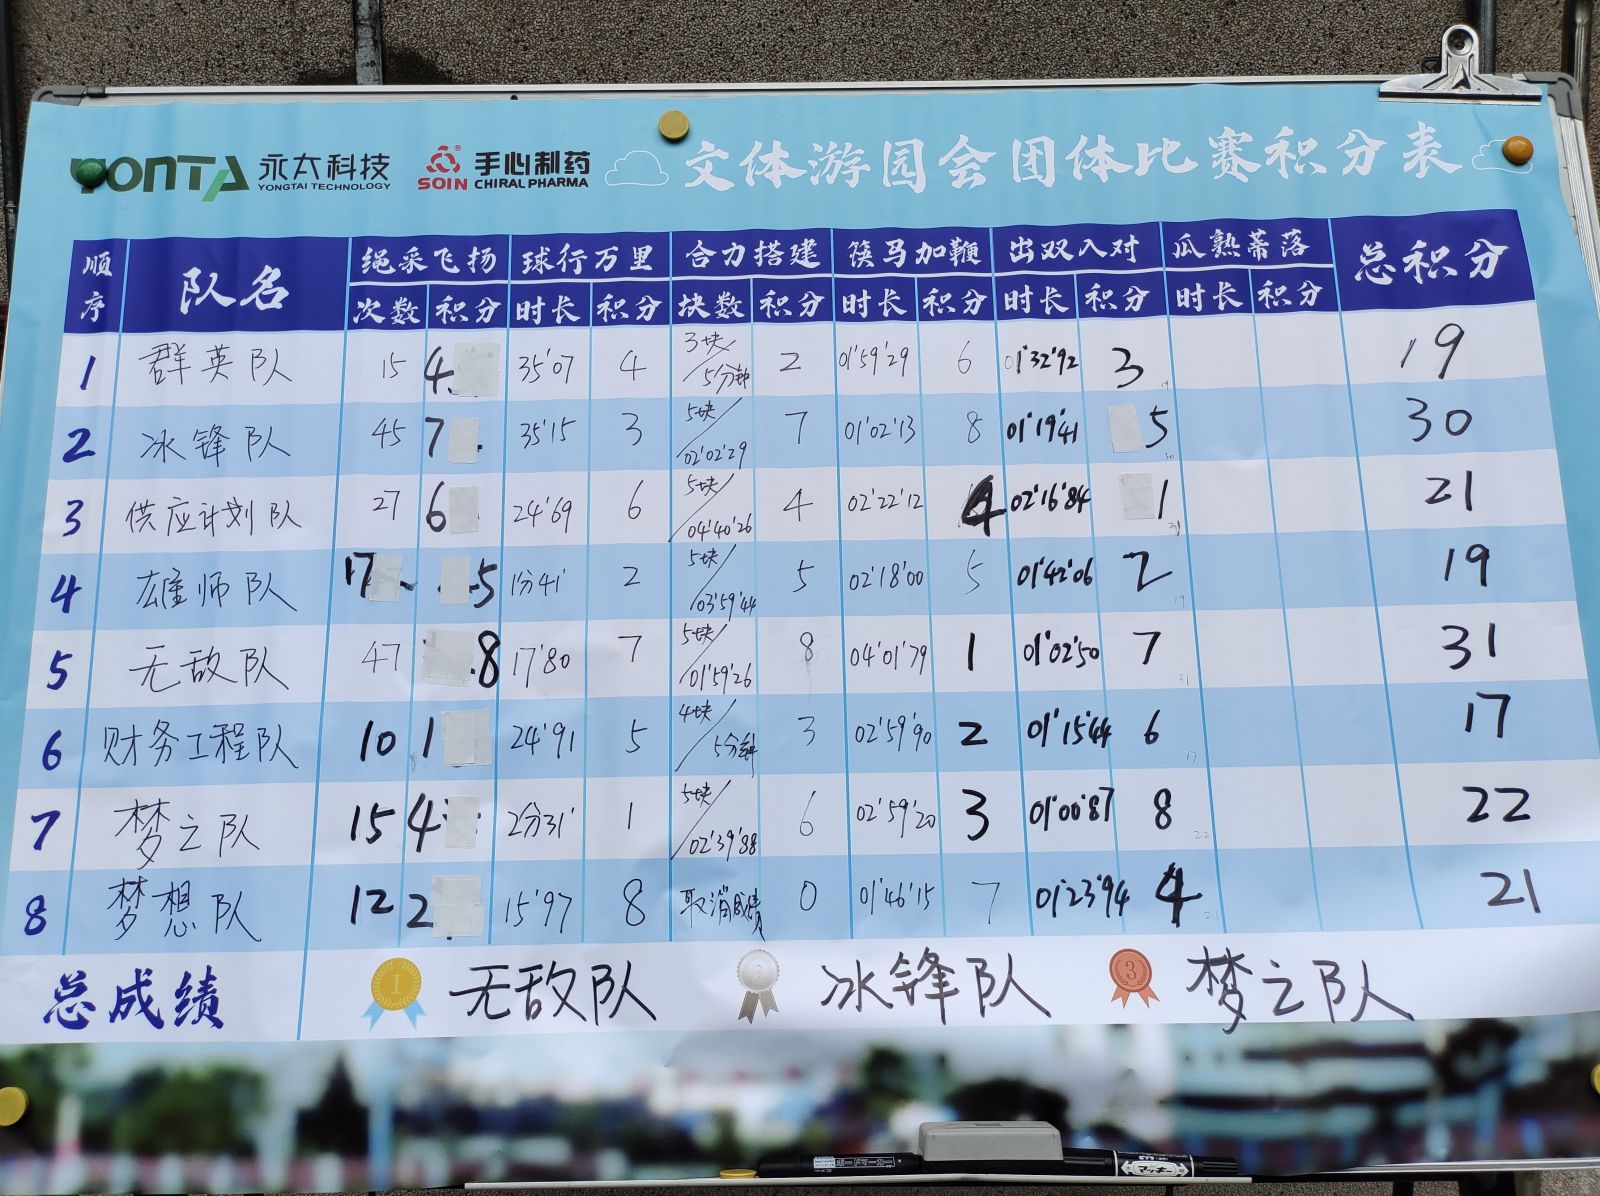 YONTA 永太科技 YONGTAI TECHNOLOGY SOIN 手心制药 CHIRAL PHARMA 文体游园会团体比赛积分表
顺序 队名 绳采飞扬 球行万里 合力搭建 筷马加鞭 出双入对 瓜熟蒂落 总积分
次数 积分 时长 积分 块数 积分 时长 积分 时长 积分 时长 积分
1 群英队 15 4 35'07 4 3块/5分钟 2 01'59'29 6 01'32'92 3 19 19
2 冰锋队 45 7 35'15 3 5块/02'02'29 7 01'02'13 8 01'19'41 5 30 30
3 供应计划队 27 6 24'69 6 5块/04'40'26 4 02'22'12 4 02'16'84 1 21 21
4 雄师队 17 5 1分41' 2 5块/03'59'44 5 02'18'00 5 01'42'06 2 19 19
5 无敌队 47 8 17'80 7 5块/01'59'26 8 04'01'79 1 01'02'50 7 31 31
6 财务工程队 10 1 24'91 5 4块/5分钟 3 02'59'90 2 01'15'44 6 17 17
7 梦之队 15 4 2分31' 1 5块/02'39'88 6 02'59'20 3 01'00'87 8 22 22
8 梦想队 12 2 15'97 8 取消成绩 0 01'46'15 7 01'23'94 4 21 21
总成绩 1 无敌队 2 冰锋队 3 梦之队